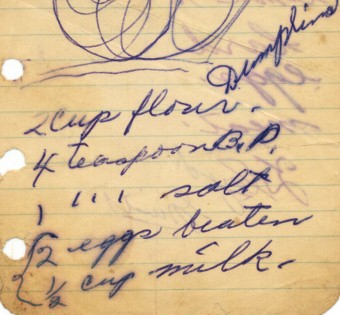 Dumplins
2 cup flour.
4 teaspoon B.P.
1 " ' ' salt
2 eggs beaten
1/2 cup milk.